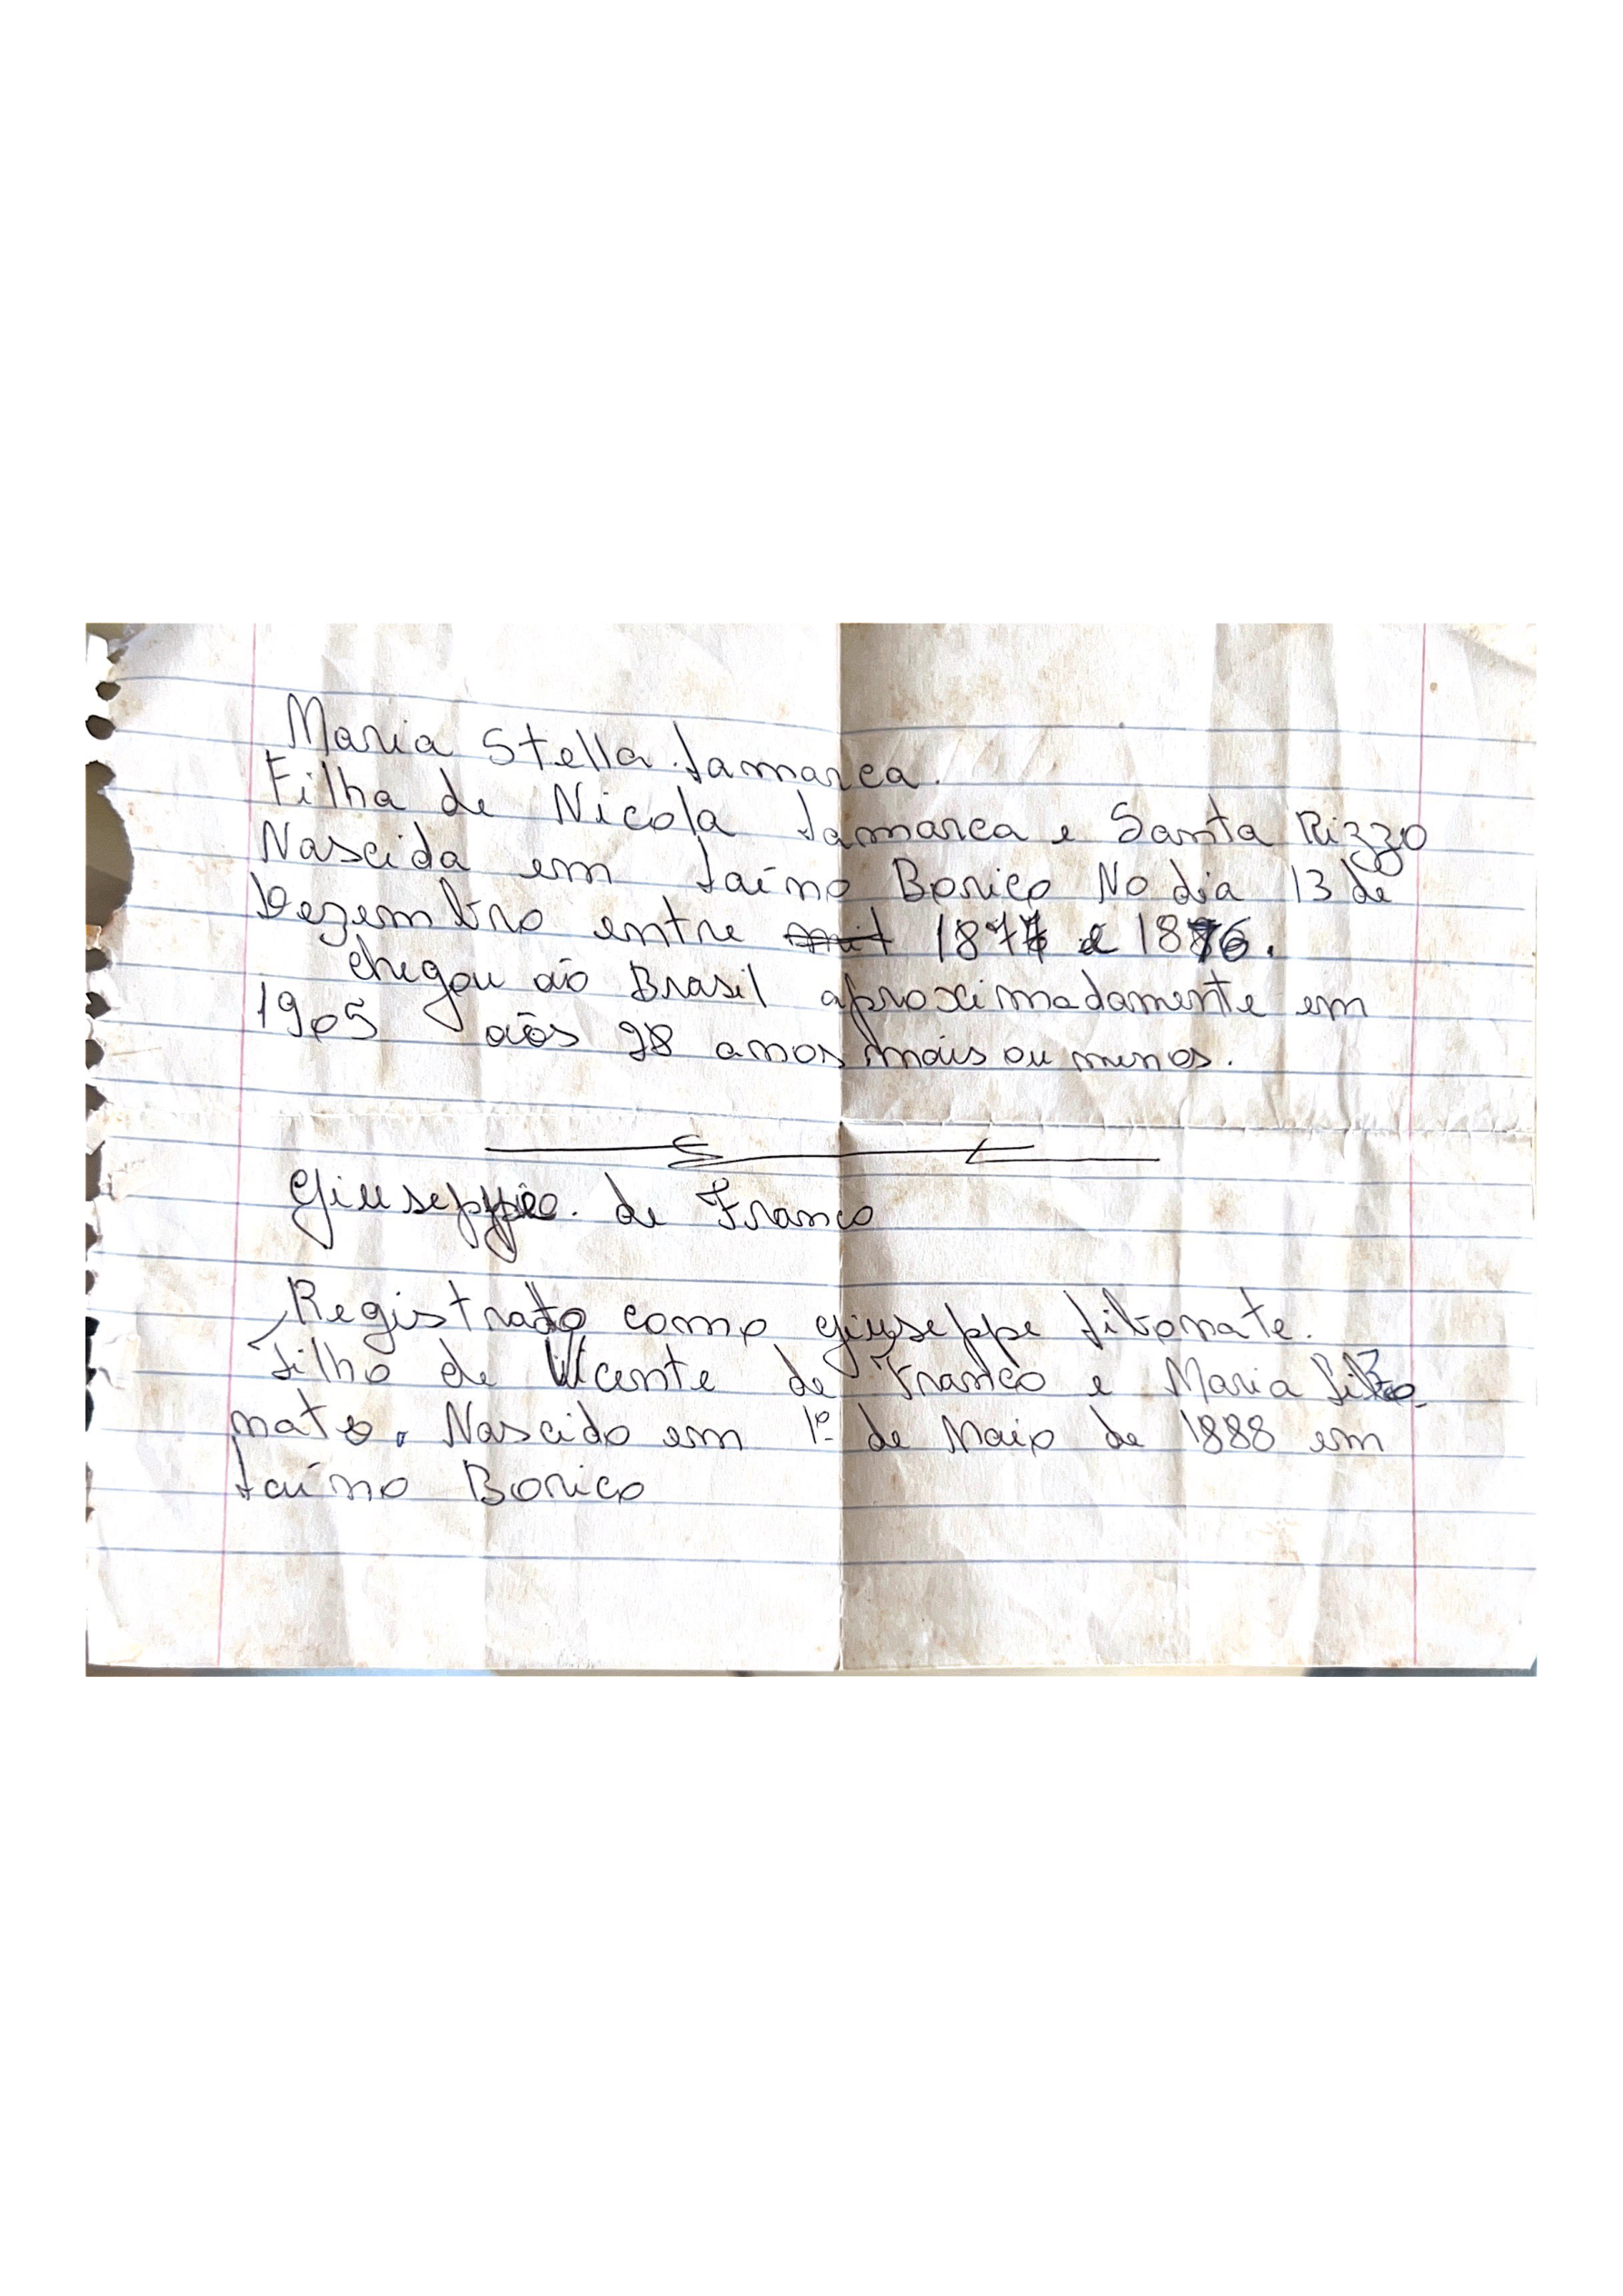 Maria Stella Lamarca.
Filha de Nicola Lamarca e Santa Rizzo
Nascida em Laíno Borico No dia 13 de
Dezembro entre 1877 e 1876.
chegou aõo Brasil aproximadamente em
1905 aõs 28 anos mais ou menos.
Giuseppe. de Franco
Registrato como giuseppe Libonate.
Filho de Vicente de Franco e Maria Libo-
nato. Nascido em 1º de Maio de 1888 em
Laíno Borico